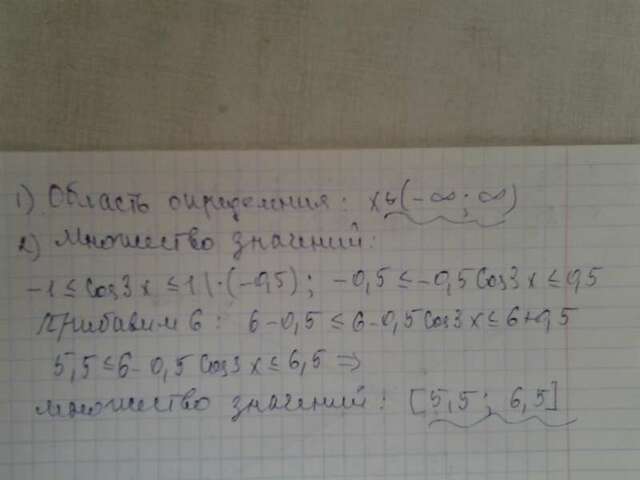 1) Область определения: x∈(-∞; ∞)
2) Множество значений:
-1≤cos3x≤1|·(-0,5); -0,5≤-0,5cos3x≤0,5
Прибавим 6: 6-0,5≤6-0,5cos3x≤6+0,5
5,5≤6-0,5cos3x≤6,5 ⇒
множество значений: [5,5; 6,5]